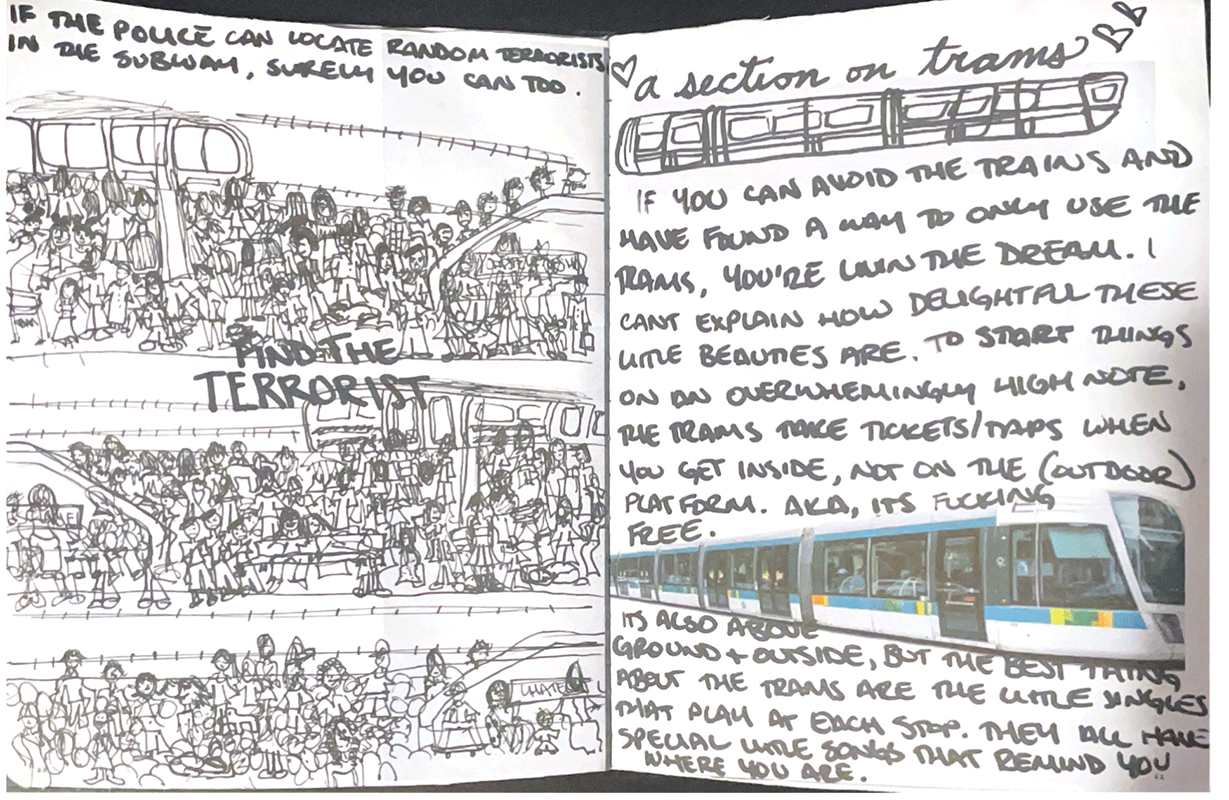 IF THE POLICE CAN LOCATE RANDOM TERRORISTS
IN THE SUBWAY, SURELY YOU CAN TOO.
FIND THE
TERRORIST
a section on trams
IF YOU CAN AVOID THE TRAINS AND
HAVE FOUND A WAY TO ONLY USE THE
TRAMS, YOU'RE LIVIN THE DREAM. I
CANT EXPLAIN HOW DELIGHTFUL THESE
LITTLE BEAUTIES ARE. TO START THINGS
ON AN OVERWHEMINGLY HIGH NOTE,
THE TRAMS TAKE TICKETS/TAPS WHEN
YOU GET INSIDE, NOT ON THE (OUTDOOR)
PLATFORM. AKA, ITS FUCKING
FREE.
ITS ALSO ABOVE
GROUND + OUTSIDE, BUT THE BEST THING
ABOUT THE TRAMS ARE THE LITTLE JINGLES
THAT PLAY AT EACH STOP. THEY ALL HAVE
SPECIAL LITTLE SONGS THAT REMIND YOU
WHERE YOU ARE.